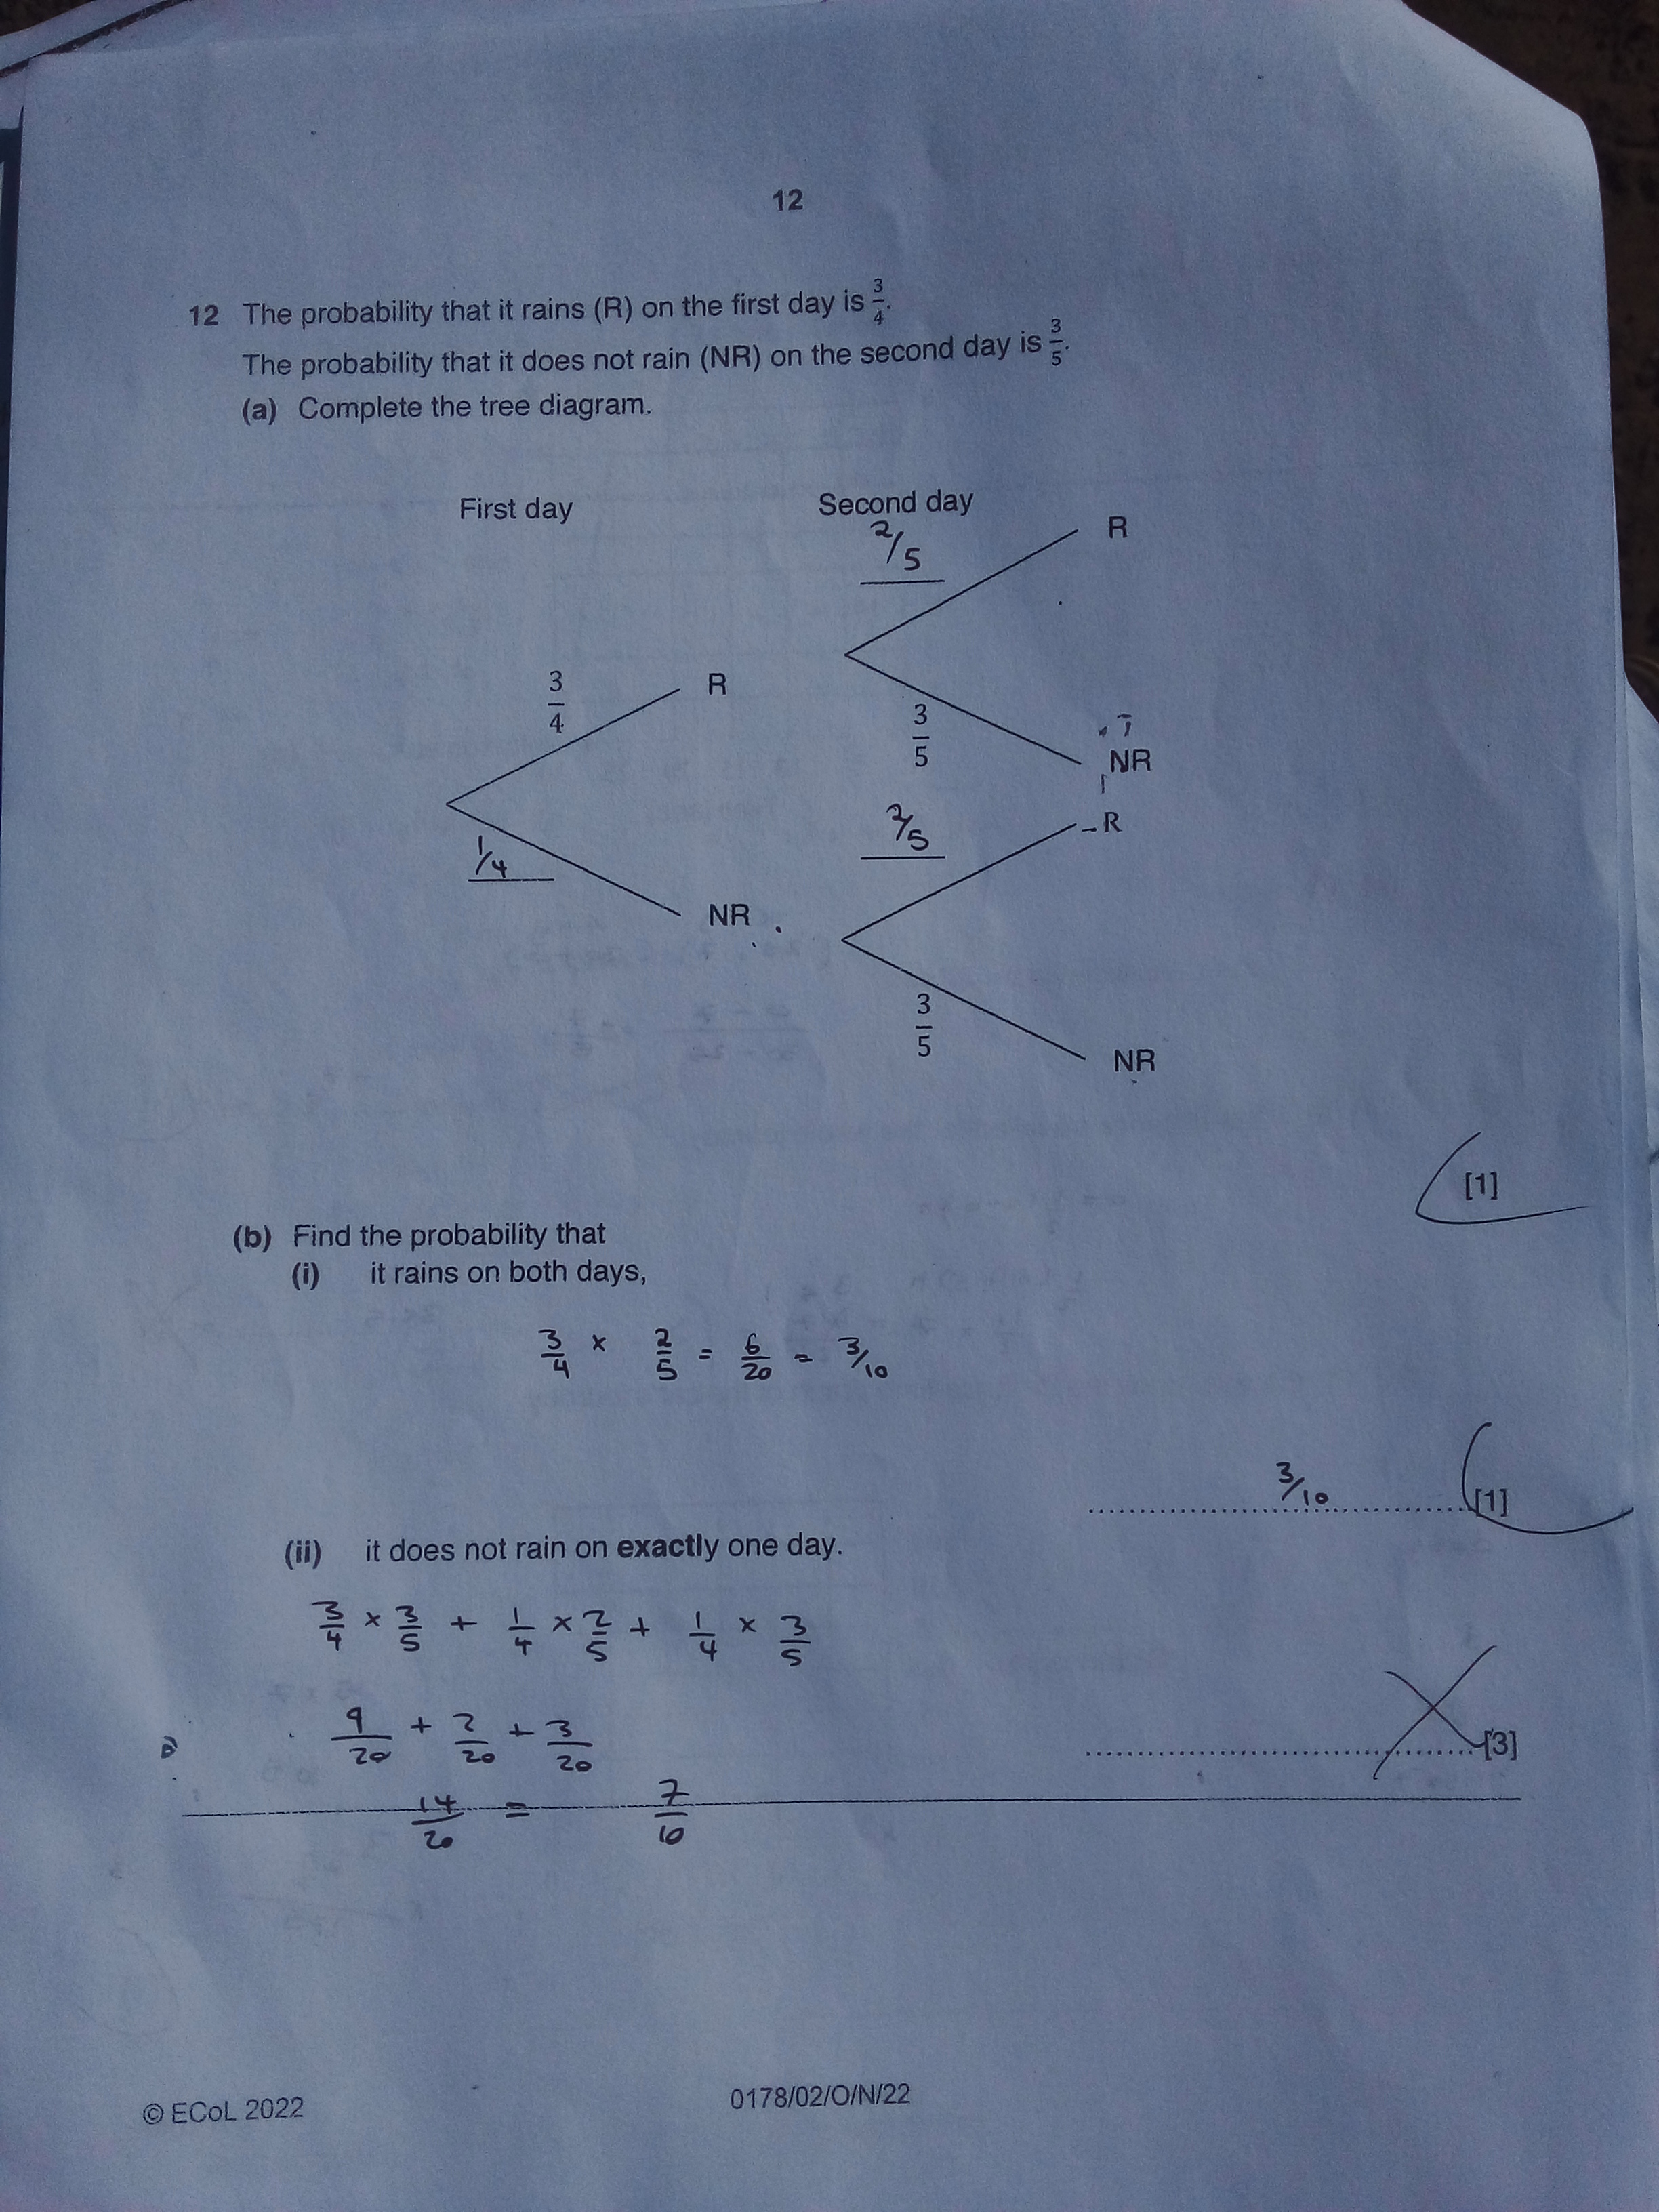 12
12 The probability that it rains (R) on the first day is 3/4.
The probability that it does not rain (NR) on the second day is 3/5.
(a) Complete the tree diagram.
First day Second day
2/5
R
3/4
R
3/5
NR
2/5
R
1/4
NR
3/5
NR
[1]
(b) Find the probability that
(i) it rains on both days,
3/4 × 2/5 = 6/20 = 3/10
3/10 [1]
(ii) it does not rain on exactly one day.
3/4 × 3/5 + 1/4 × 2/5 + 1/4 × 3/5
9/20 + 2/20 + 3/20
[3]
14/20 = 7/10
© ECoL 2022 0178/02/O/N/22